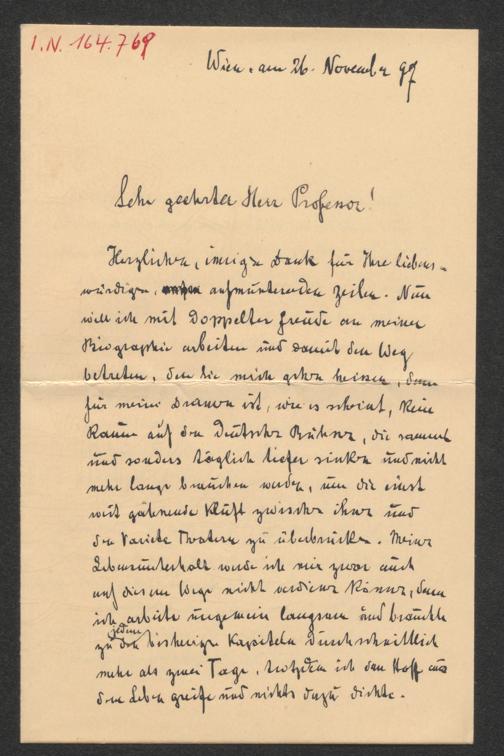 I.N. 164.769
Wien, am 26. November 97
Sehr geehrter Herr Professor!
Herzlichen, innigen Dank für Ihre liebens-
würdigen, aufmunternden Zeilen. Nun
will ich mit doppelter Freude an meiner
Biographie arbeiten und damit den Weg
betreten, den Sie mich gehen heissen, denn
für meine Dramen ist, wie es scheint, kein
Raum auf den Deutschen Bühnen, die sammt
und sonders täglich tiefer sinken und nicht
mehr lange brauchen werden, um die einst
weit gähnende Kluft zwischen ihnen und
den Variete Theatern zu überbrücken. Meinen
Lebensunterhalt werde ich mir zwar auch
auf diesem Wege nicht verdienen können, denn
ich arbeite ungemein langsam und brauchte
zu jedem der bisherigen Kapiteln durchschnittlich
mehr als zwei Tage, trotzdem ich den Stoff aus
dem Leben greife und nichts dazu dichte.